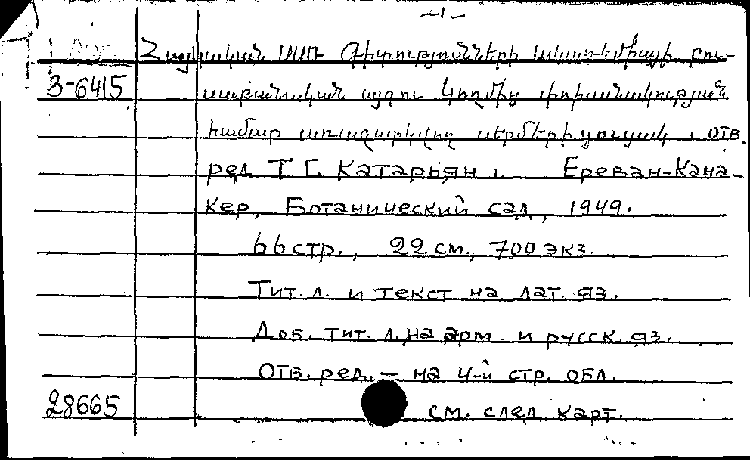 -1-
Հայկական ՍՍՌ Գիտությունների Ակադեմիայի բու-
3-6415
սաբանական այգու կողմից փոխանակության
համար առաջարկվող սերմերի ցուցակ. отв.
ред. Т. Г. Катарьян. Ереван-Кана-
кер, Ботанический сад, 1949.
66 стр., 22 см., 700 экз.
Тит. л. и текст на лат. яз.
Доб. тит. л. на арм. и русск. яз.
Отв. ред. – на 4-й стр. обл.
28665 см. след. карт.